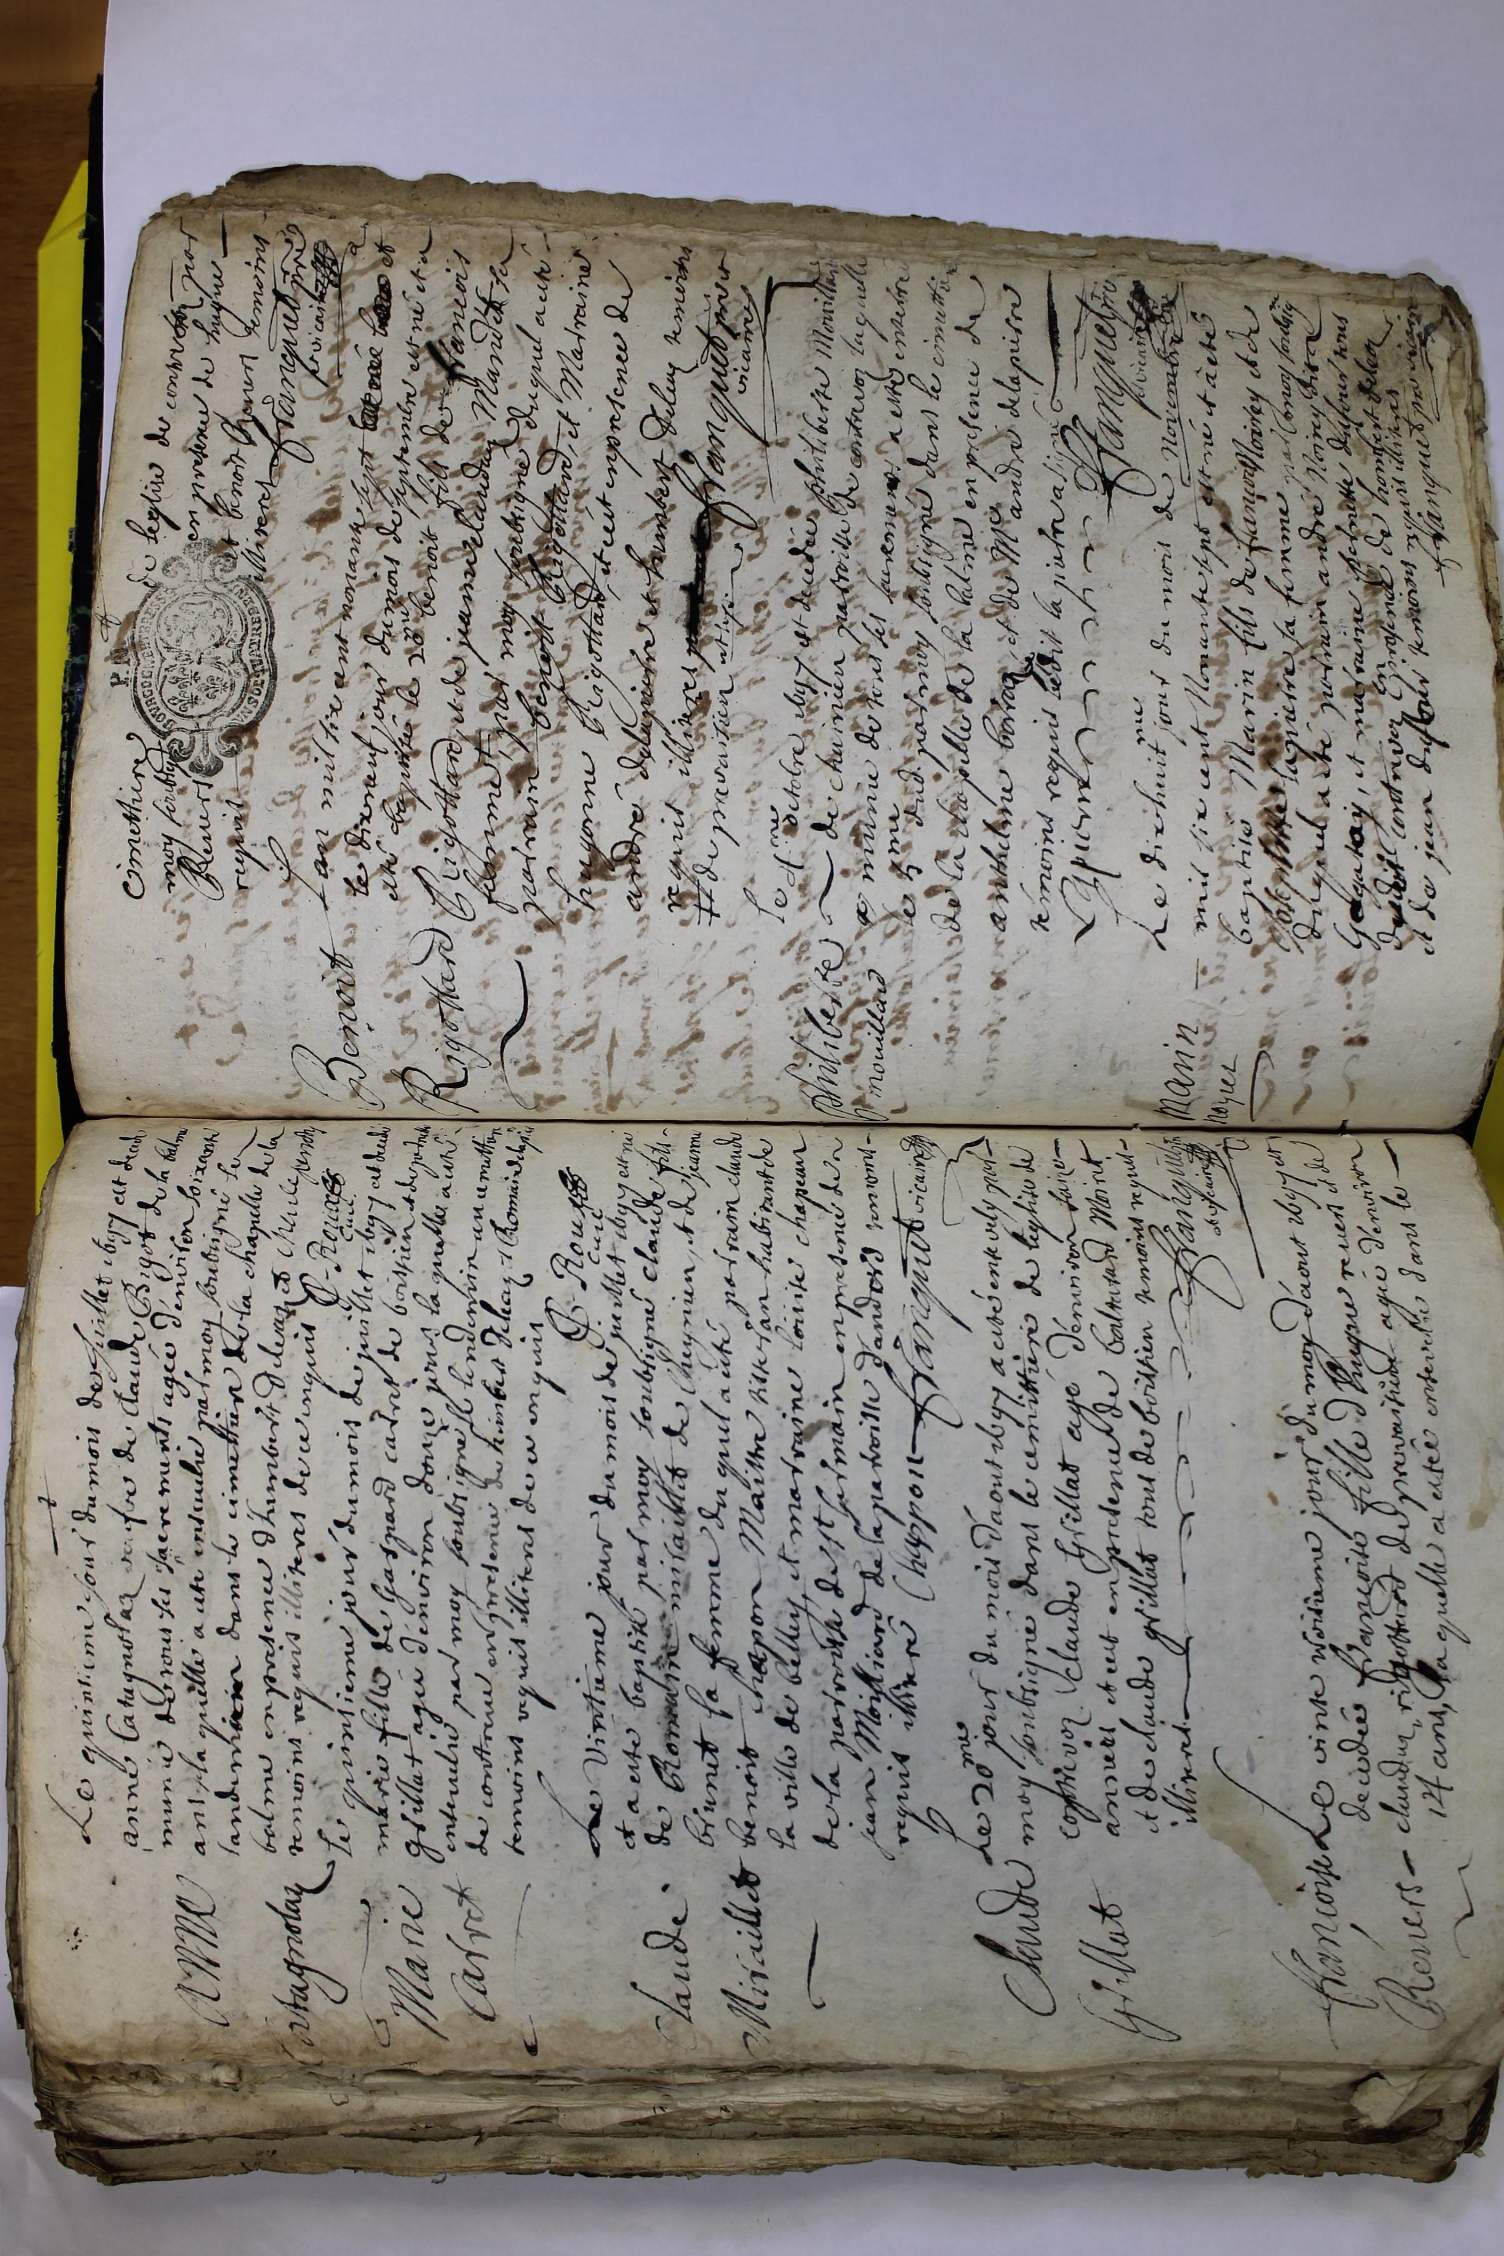 Le quinsieme jour du mois de Juillet 1697 est decedé
anne Catagnolaz veufve de Claude Bigot de la balme
munie de tous ses sacrements agée d'environ soixante
ans, la quelle a esté ensevelie par moy soubsigné le
landemain dans le cimetiere de la chapelle de la
balme en presence d'humbert deleaz et
temoins requis illiteres de ce enquis
P. Roux
curé
anne
Catagnolaz
Le jour du mois de juillet 1697 est decedé
marie fille de Gaspard carret de
grillat agée d'environ douze jours la quelle a esté
ensevelie par moy soubsigné le lendemain au cimettiere
de contrevoz en presence de humbert deleaz et Romain
temoins requis illiteres de ce enquis
P. Roux
curé
Marie
Carret
Le vintieme jour du mois de juillet 1697 est né
et a este baptisé par moy soubsigné claude fils
de Romain miraillet de Cheynieu et de jeanne
brunet sa femme du quel a esté parrain claude
benoit chapon Maitre tisseran habitant de
la ville de belley et marraine louise chapeau
de la parroisse de St germain en presence de
jean Moilliard de la parroisse d'andert temoins
requis illiteré Chappon franquet vicaire
Claude
Miraillet
Le 20me jour du mois d'aoust 1697 a esté ensevely par
moy soubsigné dans le cimittiere de leglise de
contrevoz Claude Grillat agé d'environ
années et est en presence de baltazard Moiret
et de claude grillat tous de boissieu temoins requis
illiteres
franquet
vicaire
Claude
Grillat
Le vinte troisieme jour du moy d'aoust 1697 est
decedée francoise fille d'hugue revers et de
claudaz rigottard de prevaisieu agée d'environ
14 ans, laquelle a esté ensevelie dans le
francoise
Revers
cimethiere de leglise de contrevoz par
moy soubsigné en presence de hugue
Revers et benoit temoins
requis illiteres franquet pre
vicaire
Lan mil six cent nonante sept
le dixneuf jour du mois de septembre est né et a
esté baptisé le 20me benoit fils de francois
Rigottard et de jeanne claudaz Mandet sa
femme par moy soubsigné duquel a esté
parrain benoit Rigottard et Marraine
hugonne Rigottard, et c'est en presence de
andré delapierre et humbert deleaz temoins
requis illiteres franquet pre
vicaire
de prevaisieu
Benoit
Rigottard
le 4me octobre 1697 est decedée philiberte Mouillard
de cheinieu parroisse de contrevoz laquelle
munie de tous ses sacremens a esté ensevelie
le 5me dudi par moy soubsigné dans le cimettiere
de la chapelle de la balme en presence de
anthelme boiraz et de Me andré delapierre
témoins requis ledit lapierre a signé
Lapierre franquet pre
vicaire
philiberte
mouillard
Le dixhuitme jour du mois de Novembre
mil six cent Nonante sept est né et a esté
baptisé Marin fils de francois Noirey et de
lapierre sa femme par moy soubsigné
duquel a esté parrain andré Noirey
et marraine pernette
de contrevoz En presence de humbert deleaz
et de jean temoins requis illiteres
franquet pre vicaire
marin
noyret